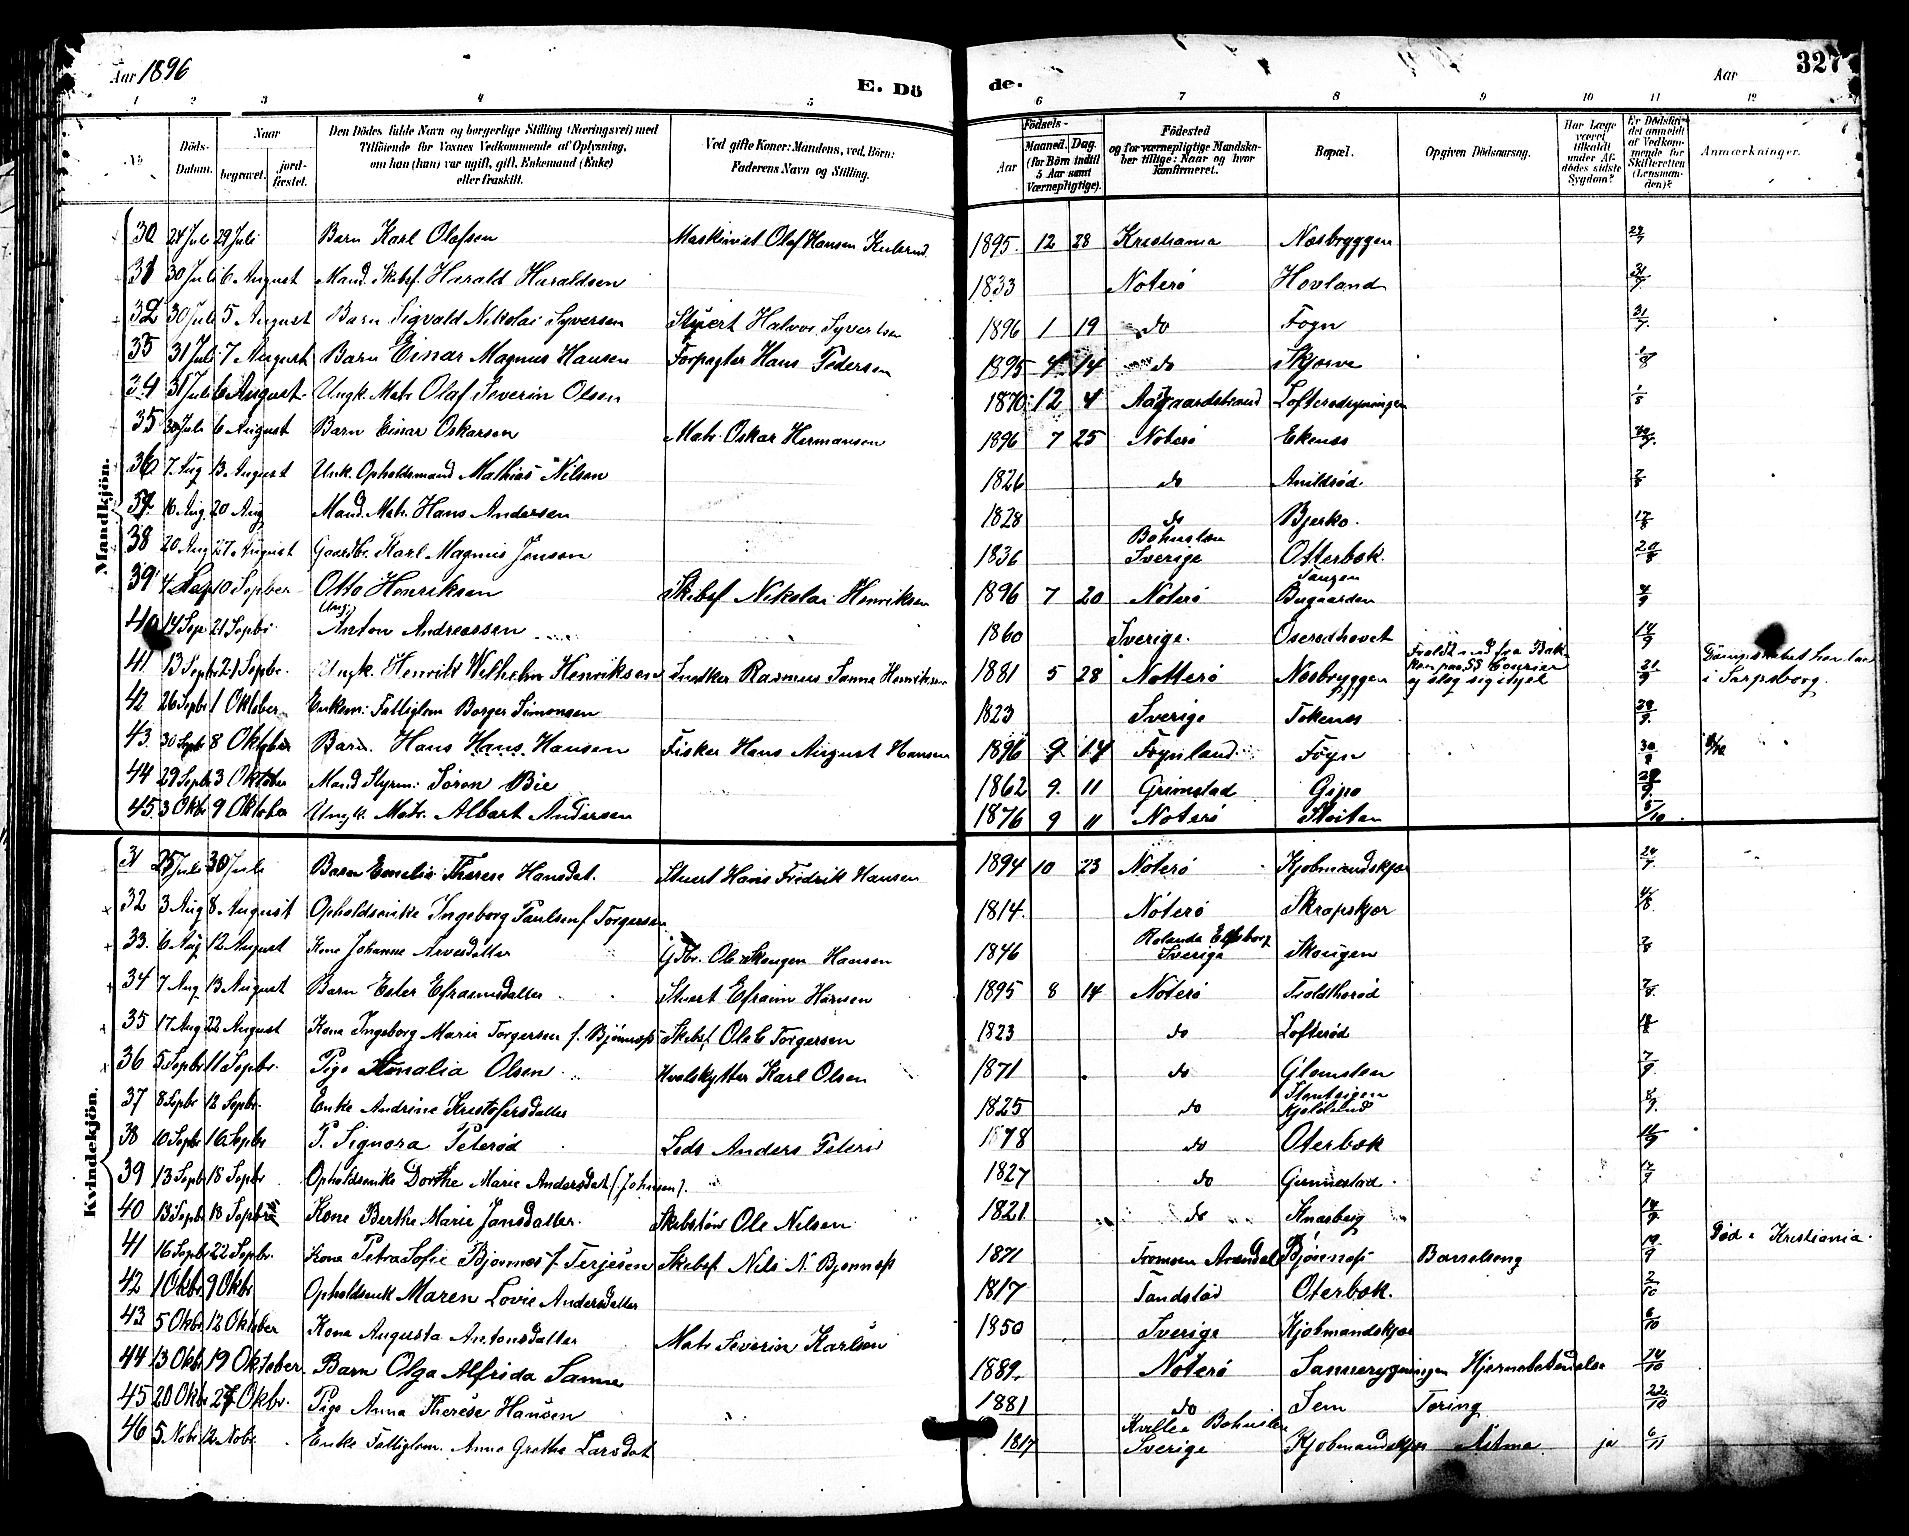 Aar 1896
E. Dö
de.
Aar
327
1 2 3 4 5 6 7 8 9 10 11 12
No
Naar
Döds-Datum.
begravet.
jord-fæstet.
Den Dödes fulde Navn og borgerlige Stilling (Næringsvei) med
Tilföiende for Voxnes Vedkommende af Oplysning,
om han (hun) var ugift, gift, Enkemand (Enke)
eller fraskilt.
Ved gifte Koner: Mandens, ved Börn:
Faderens Navn og Stilling.
Födsels-
Aar
Maaned. Dag.
(for Börn indtil
5 Aar samt
Værnepligtige).
Födested
og for værnepligtige Mandska-
ber tillige: Naar og hvor
konfirmeret.
Bopæl.
Opgiven Dödsaarsag.
Har Læge
været
tilkaldt
under Af-
dödes sidste
Sygdom?
Er Dödsfal-
det anmeldt
af Vedkom-
mende for
Skifteretten
(Lensman-
den)?
Anmærkninger.
Mandkjön.
30 24 Juli 29 Juli Barn Karl Olafsen Maskinist Olaf Hansen 1895. 12 28 Kristiania Næsbryggen
31 30 Juli 6 August Mand. Skibsf. Harald Haraldsen 1833 Noterö Hovland
32 30 Juli 5 August Barn Sigvald Nikolai Syversen Stuert Halvor Syvertsen 1896 1 19 do Føgn 31/7
33 31 Juli 7 August Barn Einar Magnus Hansen Forpagter Hans Pedersen 1895 4 14 do Skjerve 1/8
34 31 Juli 6 August Ungk. Matr. Olaf Severin Olsen 1870 12 4 Aasgaardstrand 1/8
35 30 Juli 6 August Barn Einar Oskarsen Matr. Oskar Hermansen 1896 7 25 Noterö Ekenes
36 7 Aug 13 August Unk. Opholdsmand Mathias Nilsen 1826 do
37 16 Aug. 20 Aug Mand. Matr. Hans Andersen 1828 do Bjerkø. 17/8
38 20 Aug 27 August Gaardbr. Karl Magnus Jensen 1836 Bohuslæn Sverige Otterbek. 20/8
39 4 Sep 10 Sepber Otto Henriksen Skibsf Nikolai Henriksen 1896 7 20 Noterö Tangen Bugaarden 4/9
40 14 Sep 21 Sepbr. Ung. Anton Andreassen 1860 Sverige. 14/9
41 13 Sepbr 21 Sepbr. Ungk. Henrik Wilhelm Henriksen Rasmus Sanne Henriksen 1881 5 28 Notterö Næsbryggen Faldt ned fra Bak- paa SS Courier og slog sig ihjel 21/9 i Sarpsborg.
42 26 Sepbr 1 Oktober Enkem: Fattiglem Borger Simonsen 1823 Sverige Tokenes
43. 30 Sepbr 8 Oktober Barn. Hans Hans. Hansen Fisker Hans August Hansen 1896 9 14 Føynland Føyn
44 29 Septb 3 Oktober Mand Styrm: Søren Bie 1862 9 11 Grimstad Gipø
45. 3 Oktbr 9 Oktober Ungk. Matr. Albert Andersen 1876 9 11 Noterö 5/10
Kvindekjön.
31 25 Juli 30 Juli Barn Emelie Therese Hansdat. Stuert Hans Fredrik Hansen 1894 10 23 Noterö Kjøbmandskjær
32 3 Aug 8 August Opholdsenke Ingeborg Paulsen f Torgersen 1814. Noterö Skrapskjær 4/8
33. 6 Aug 12 August Kone Johanne Arvesdatter Gbr. Ole Skougen Hansen 1846 Elfsborg Sverige Skougen
34 7 Aug 13 August Barn Ester Efraimsdatter Stuert Efraim Hansen 1895 8 14 Noterö 7/8
35 17 Aug 22 August Kone Ingeborg Marie Torgersen f. Bjønnæss Skibsf. Ole C Torgersen 1823 do Lofterød 18/8
36 5 Sepbr 11 Sepbr. Pige Amalia Olsen Hvalskytter Karl Olsen 1871 do Glomsten 7/9
37 8 Sepbr 12 Sepbr. Enke Andrine Kristofersdatter 1825 do
38 10 Sepbr 16 Sepbr P. Signora Peterød Anders 1878 do Oterbek
39 13 Sepbr 18 Sepbr Opholdsenke Dorthe Marie Andersdat (Johnsen). 1827 do Gunnestad
40 13 Sepbr 18 Sepbr Kone Berthe Marie Jansdatter. Ole Nilsen 1821 do Knarberg
41 16 Sepbr 22 Sepbr. Kone Petra Sofie Bjønnes f. Terjesen Skibsf Nils N. Bjønness 1871 Tromøen Arendal Bjønness Barselseng 19/9 Død i Kristiania.
42 1 Okbr 9 Okbr Opholdsenk Maren Lovie Andersdatter 1817 Oterbek. 2/10
43 5 Okbr 12 Oktober Kone Augusta Antonsdatter Matr Severin Karlsen 1850 Sverige Kjøbmandskjær 6/10
44 13 Okbr 19 Oktober Barn Olga Alfrida Sanne 1889. Noterö Sannerygningen Hjernebetændelse 14/10
45 20 Okbr 27 Okbr. Pige Anna Therese Hansen 1881 do Sem Tæring 22/10
46 5 Nobr 12 Nobr Enke Fattiglem. Anne Grethe Larsdat 1817 Bohuslen Sverige Kjøbmandskjær Astma ja 6/11